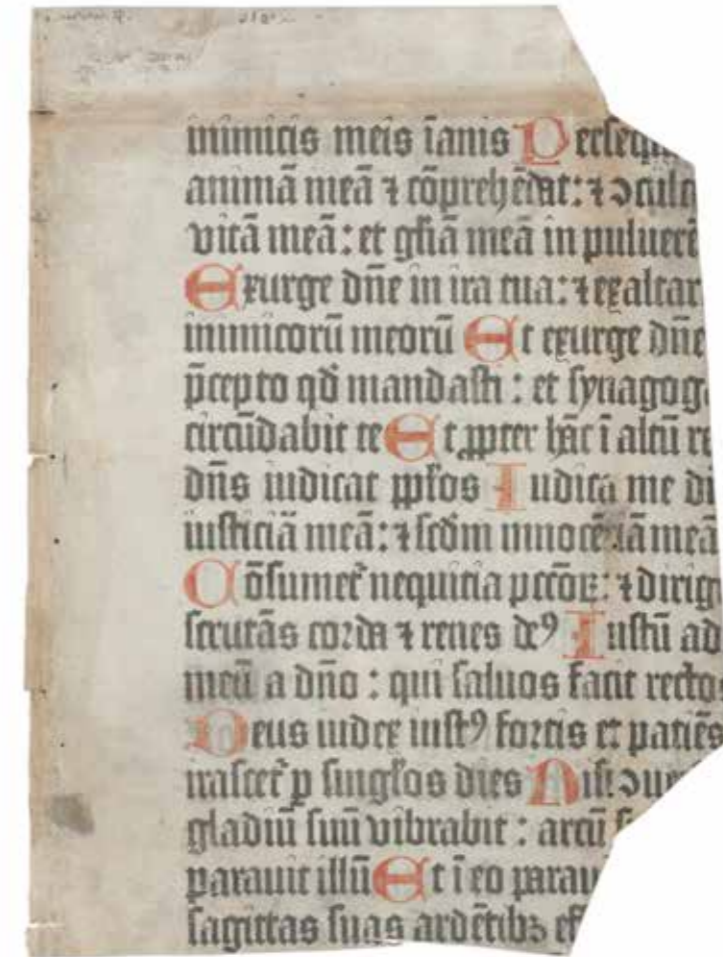 inimicis meis īanis Persequ
animā meā ⁊ cōprehēdat: ⁊ ɔculc
vitā meā: et gl̄iā meā in puluerē
Exurge dn̄e in ira tua: ⁊ exaltar
inimicorū meorū Et exurge dn̄e
p̄cepto qd̄ mandasti : et synagoga
circūdabit te Et ꝓpter hāc ī altū re
dn̄s iudicat pp̄los Iudica me di
iusticiā meā: ⁊ scd̄m innocētiā meā
Cōsumet᷑ nequicia pcc̄oꝝ: ⁊ dirig
scrutās corda ⁊ renes deꝰ Iustū ad
meū a dn̄o : qui saluos facit recto
Deus iudex iustꝰ fortis et patiēs
irascet᷑ ꝑ singl̄os dies Nisi ɔuer
gladiū suū vibrabit : arcū s
parauit illū Et ī eo parau
sagittas suas ardētibꝫ eff